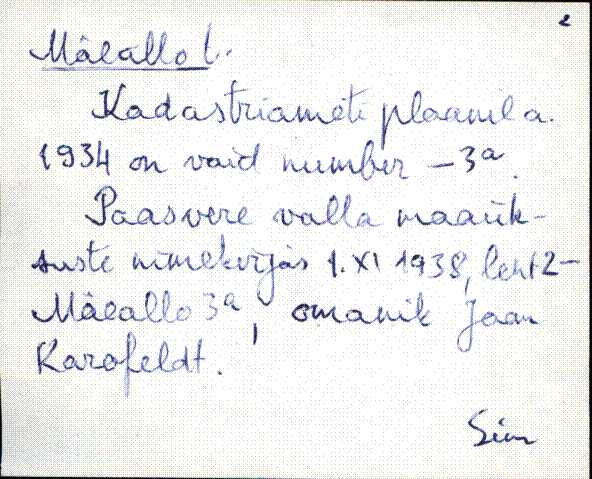 2
Mäeallo t.
Kadastriameti plaanil a.
1934 on vaid number – 3a.
Paasvere valla maaük-
suste nimekirjas 1. XI 1938, leht 2 –
Mäeallo 3a, omanik Jaan
Karofeldt.